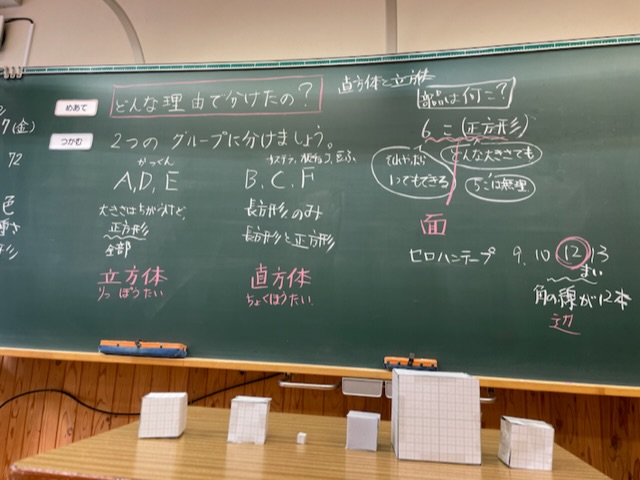 7(金)
72
色
めあて
どんな理由で分けたの？
つかむ
2つのグループに分けましょう。
かっくん
A,D,E
大きさはちがうけど、
正方形
全部
立方体
りっぽうたい
B,C,F
長方形のみ
長方形と正方形
直方体
ちょくほうたい
直方体と立方体
部品は何こ？
6こ(正方形)
どんな大きさでも
5こは無理
面
セロハンテープ 9.10 12 13
まい
角の線が12本
辺